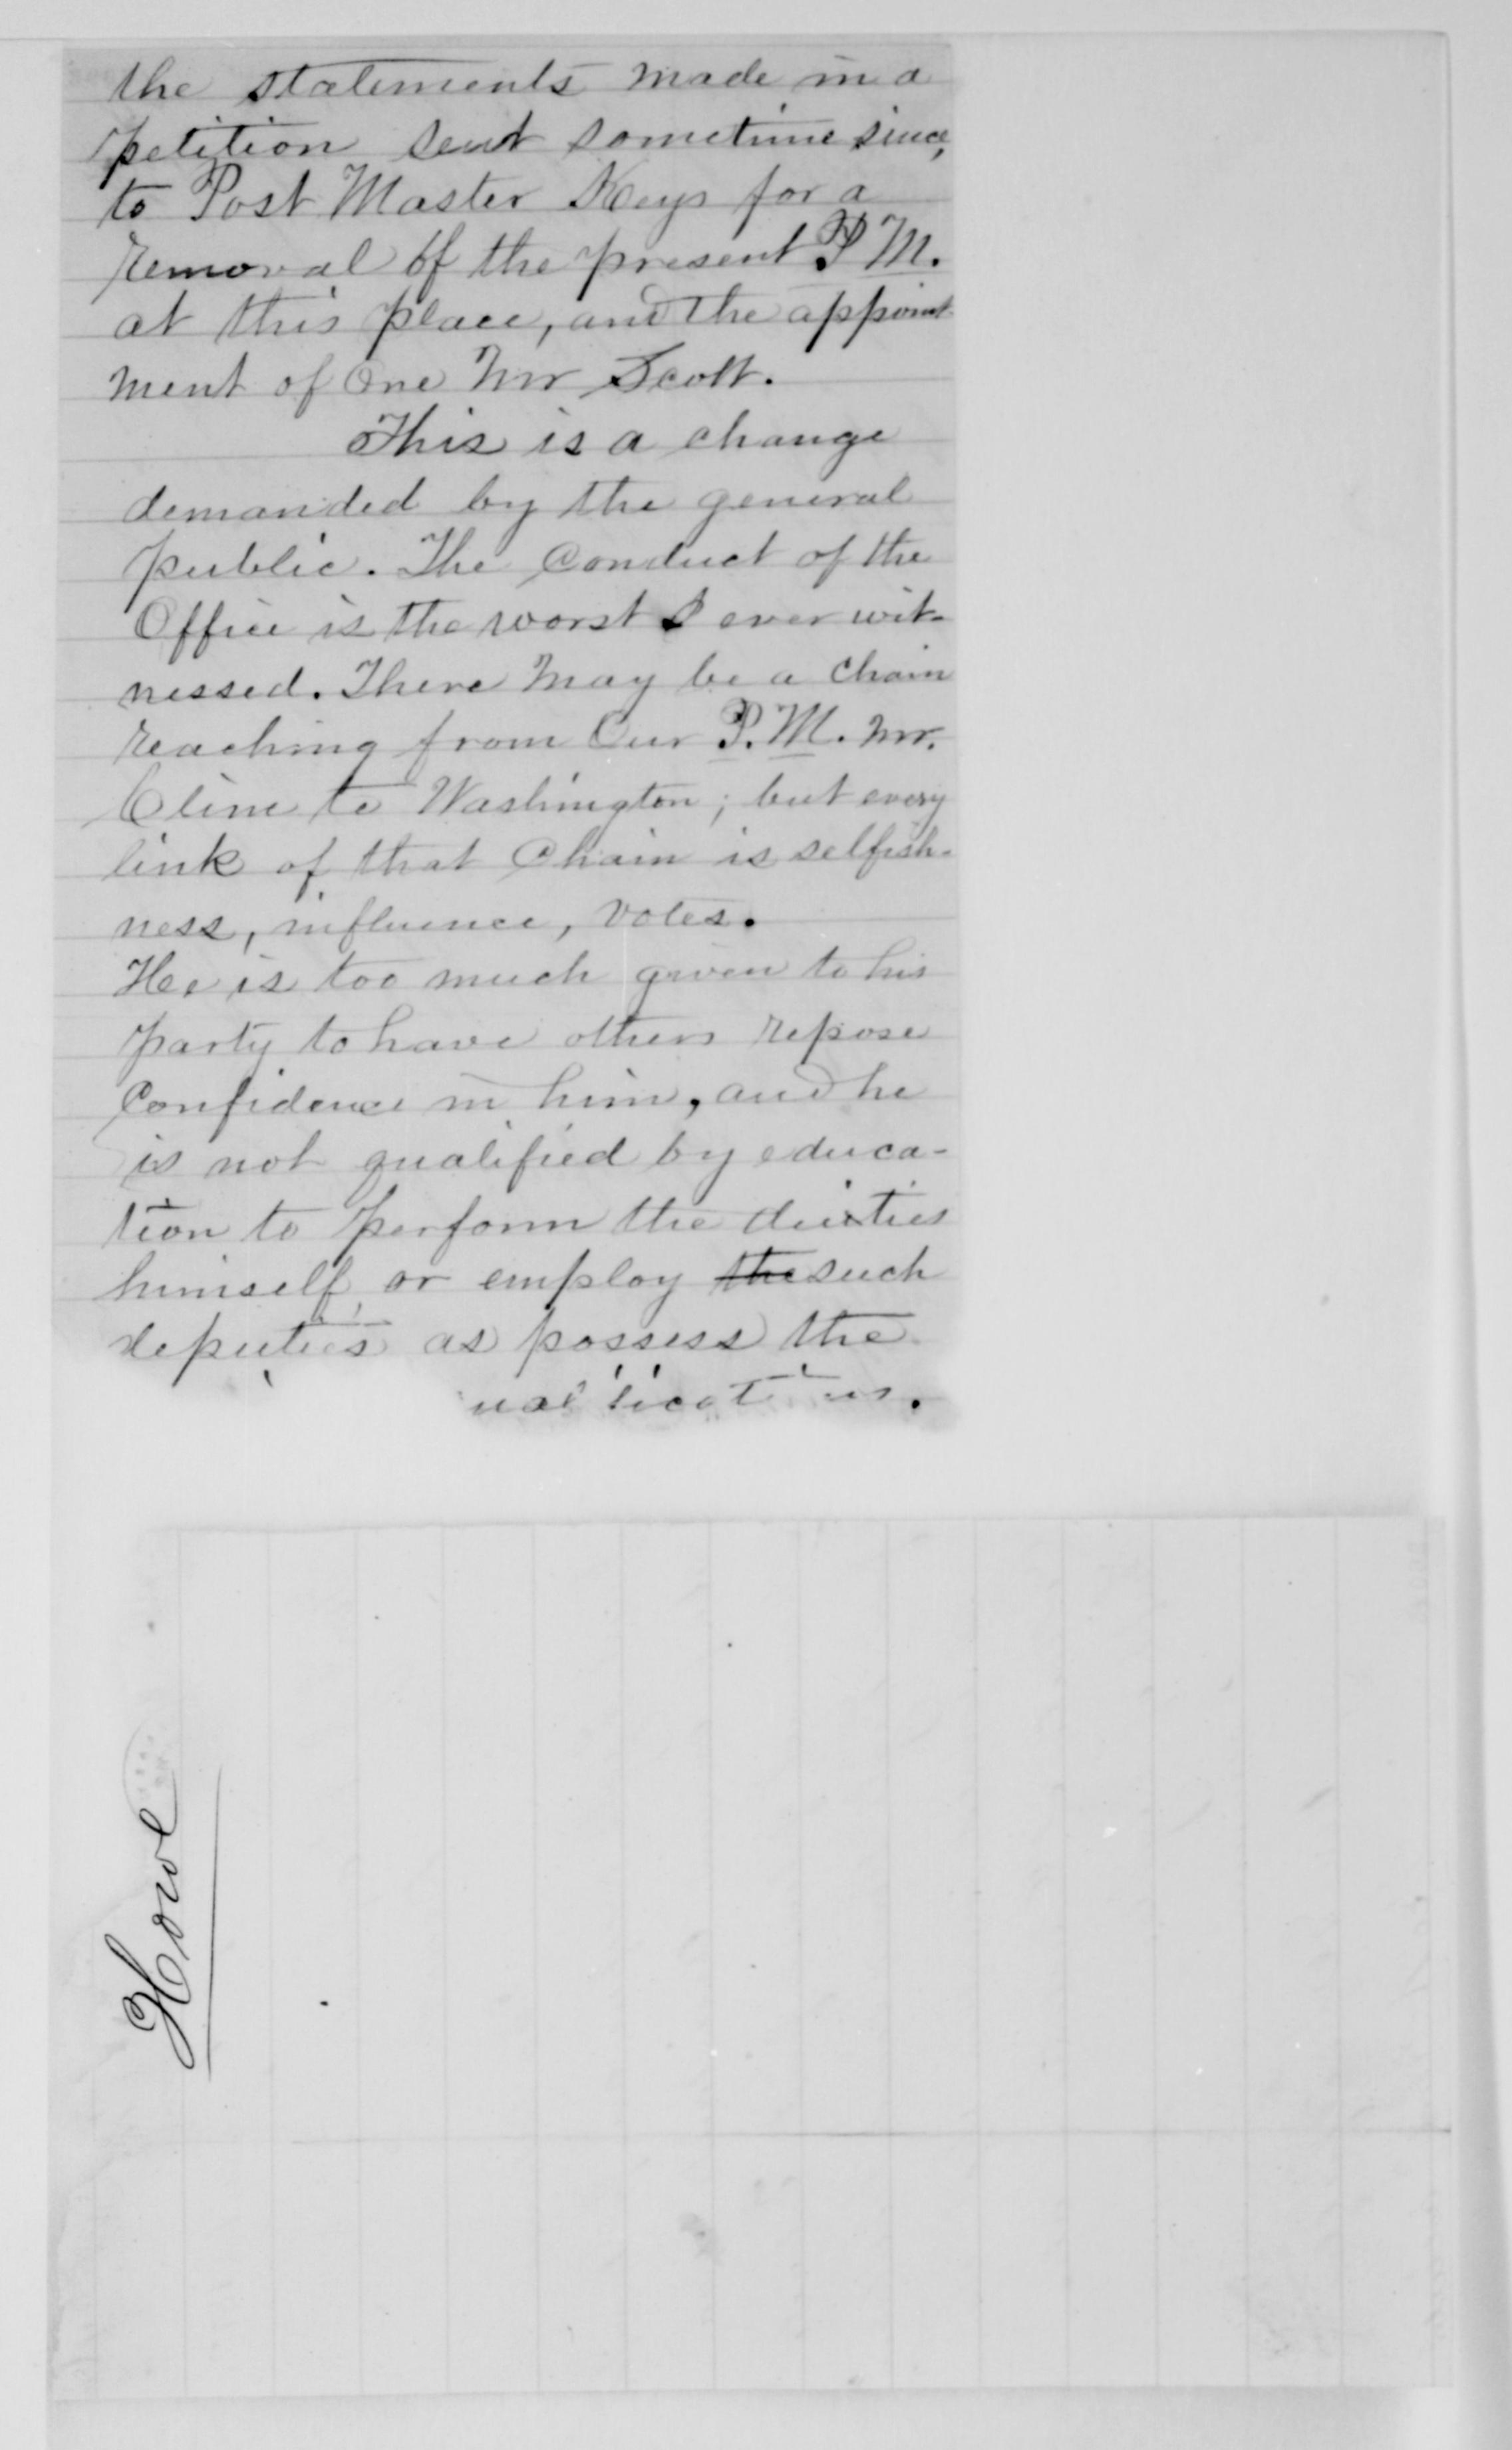 the statements made in a
petition sent sometime since,
to Post Master Keys for a
removal of the present P. M.
at this place, and the appoint-
ment of One Mr Scott.
This is a change
demanded by the general
public. The Conduct of the
Office is the worst I ever wit-
nessed. There may be a chain
reaching from Our P. M. Mr.
Cline to Washington; but every
link of that Chain is selfish-
ness, influence, votes.
He is too much given to his
party to have others repose
Confidence in him, and he
is not qualified by educa-
tion to perform the duties
himself, or employ the such
deputies as possess the
Howe